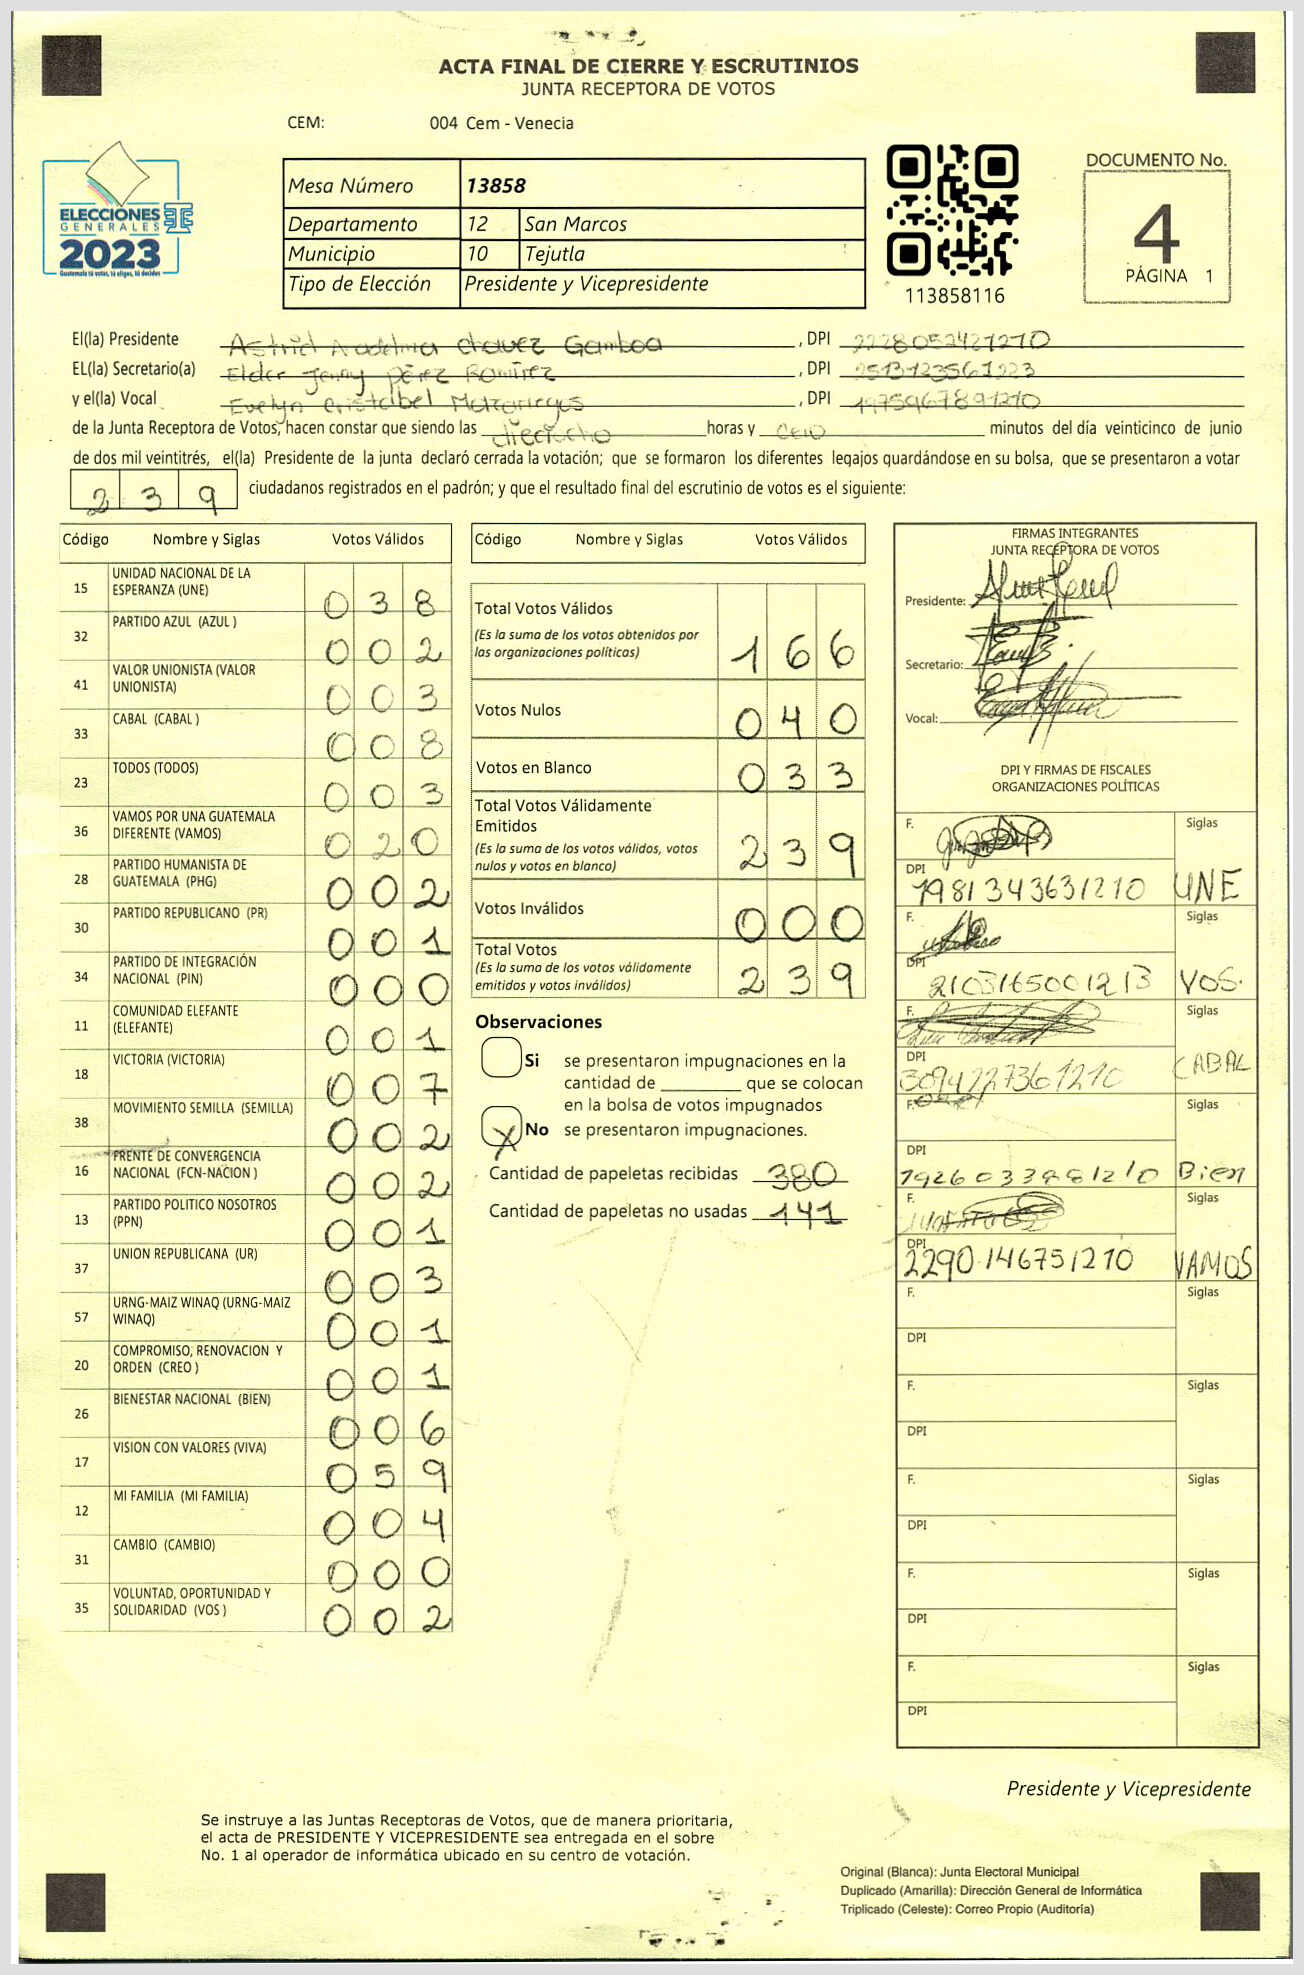 ACTA FINAL DE CIERRE Y ESCRUTINIOS
JUNTA RECEPTORA DE VOTOS
CEM: 004 Cem - Venecia
ELECCIONES
GENERALES
2023
Guatemala tú votas, tú eliges, tú decides
Mesa Número 13858
Departamento 12 San Marcos
Municipio 10 Tejutla
Tipo de Elección Presidente y Vicepresidente
113858116
DOCUMENTO No.
4
PÁGINA 1
El(la) Presidente Astrid Chavez Gamboa, DPI
EL(la) Secretario(a) Elder Jenny Pérez Ramírez, DPI
y el(la) Vocal Evelyn Cristabel, DPI
de la Junta Receptora de Votos, hacen constar que siendo las dieciocho horas y cero minutos del día veinticinco de junio
de dos mil veintitrés, el(la) Presidente de la junta declaró cerrada la votación; que se formaron los diferentes legajos quardándose en su bolsa, que se presentaron a votar
239 ciudadanos registrados en el padrón; y que el resultado final del escrutinio de votos es el siguiente:
Código Nombre y Siglas Votos Válidos
15 UNIDAD NACIONAL DE LA ESPERANZA (UNE) 038
32 PARTIDO AZUL (AZUL ) 002
41 VALOR UNIONISTA (VALOR UNIONISTA) 003
33 CABAL (CABAL ) 008
23 TODOS (TODOS) 003
36 VAMOS POR UNA GUATEMALA DIFERENTE (VAMOS) 020
28 PARTIDO HUMANISTA DE GUATEMALA (PHG) 002
30 PARTIDO REPUBLICANO (PR) 001
34 PARTIDO DE INTEGRACIÓN NACIONAL (PIN) 000
11 COMUNIDAD ELEFANTE (ELEFANTE) 001
18 VICTORIA (VICTORIA) 007
38 MOVIMIENTO SEMILLA (SEMILLA) 002
16 FRENTE DE CONVERGENCIA NACIONAL (FCN-NACION ) 002
13 PARTIDO POLITICO NOSOTROS (PPN) 001
37 UNION REPUBLICANA (UR) 003
57 URNG-MAIZ WINAQ (URNG-MAIZ WINAQ) 001
20 COMPROMISO, RENOVACION Y ORDEN (CREO ) 001
26 BIENESTAR NACIONAL (BIEN) 006
17 VISION CON VALORES (VIVA) 059
12 MI FAMILIA (MI FAMILIA) 004
31 CAMBIO (CAMBIO) 000
35 VOLUNTAD, OPORTUNIDAD Y SOLIDARIDAD (VOS ) 002
Código Nombre y Siglas Votos Válidos
Total Votos Válidos
(Es la suma de los votos obtenidos por
las organizaciones políticas) 166
Votos Nulos 040
Votos en Blanco 033
Total Votos Válidamente
Emitidos
(Es la suma de los votos válidos, votos
nulos y votos en blanco) 239
Votos Inválidos 000
Total Votos
(Es la suma de los votos válidamente
emitidos y votos inválidos) 239
Observaciones
Si se presentaron impugnaciones en la
cantidad de ________ que se colocan
en la bolsa de votos impugnados
X No se presentaron impugnaciones.
Cantidad de papeletas recibidas 380
Cantidad de papeletas no usadas 141
FIRMAS INTEGRANTES
JUNTA RECEPTORA DE VOTOS
Presidente:
Secretario:
Vocal:
DPI Y FIRMAS DE FISCALES
ORGANIZACIONES POLÍTICAS
F. Siglas
DPI 1981343631210 UNE
F. Siglas
DPI 2103165001213 VOS.
F. Siglas
DPI CABAL
F. Siglas
DPI Bien
F. Siglas
DPI 2290146751210 VAMOS
F. Siglas
DPI
F. Siglas
DPI
F. Siglas
DPI
F. Siglas
DPI
F. Siglas
DPI
Presidente y Vicepresidente
Se instruye a las Juntas Receptoras de Votos, que de manera prioritaria,
el acta de PRESIDENTE Y VICEPRESIDENTE sea entregada en el sobre
No. 1 al operador de informática ubicado en su centro de votación.
Original (Blanca): Junta Electoral Municipal
Duplicado (Amarilla): Dirección General de Informática
Triplicado (Celeste): Correo Propio (Auditoría)